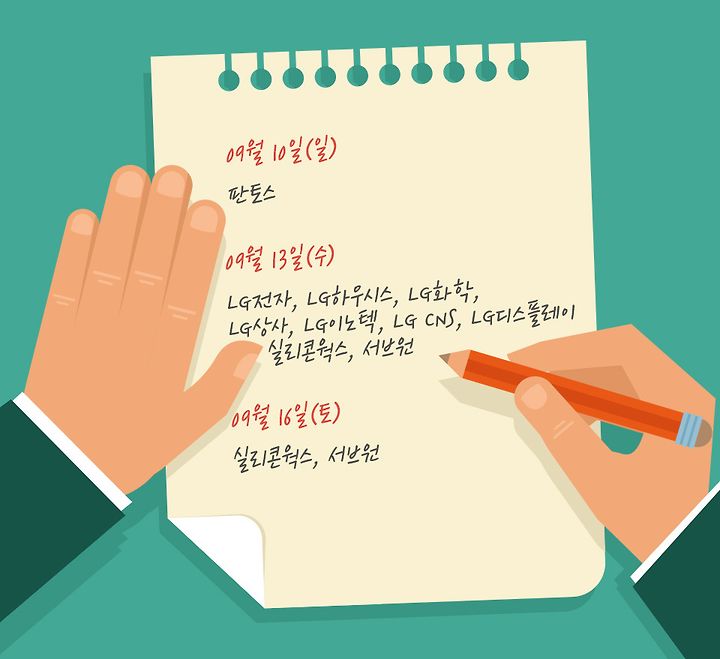 09월 10일(일)
판토스
09월 13일(수)
LG전자, LG하우시스, LG화학,
LG상사, LG이노텍, LG CNS, LG디스플레이
실리콘웍스, 서브원
09월 16일(토)
실리콘웍스, 서브원